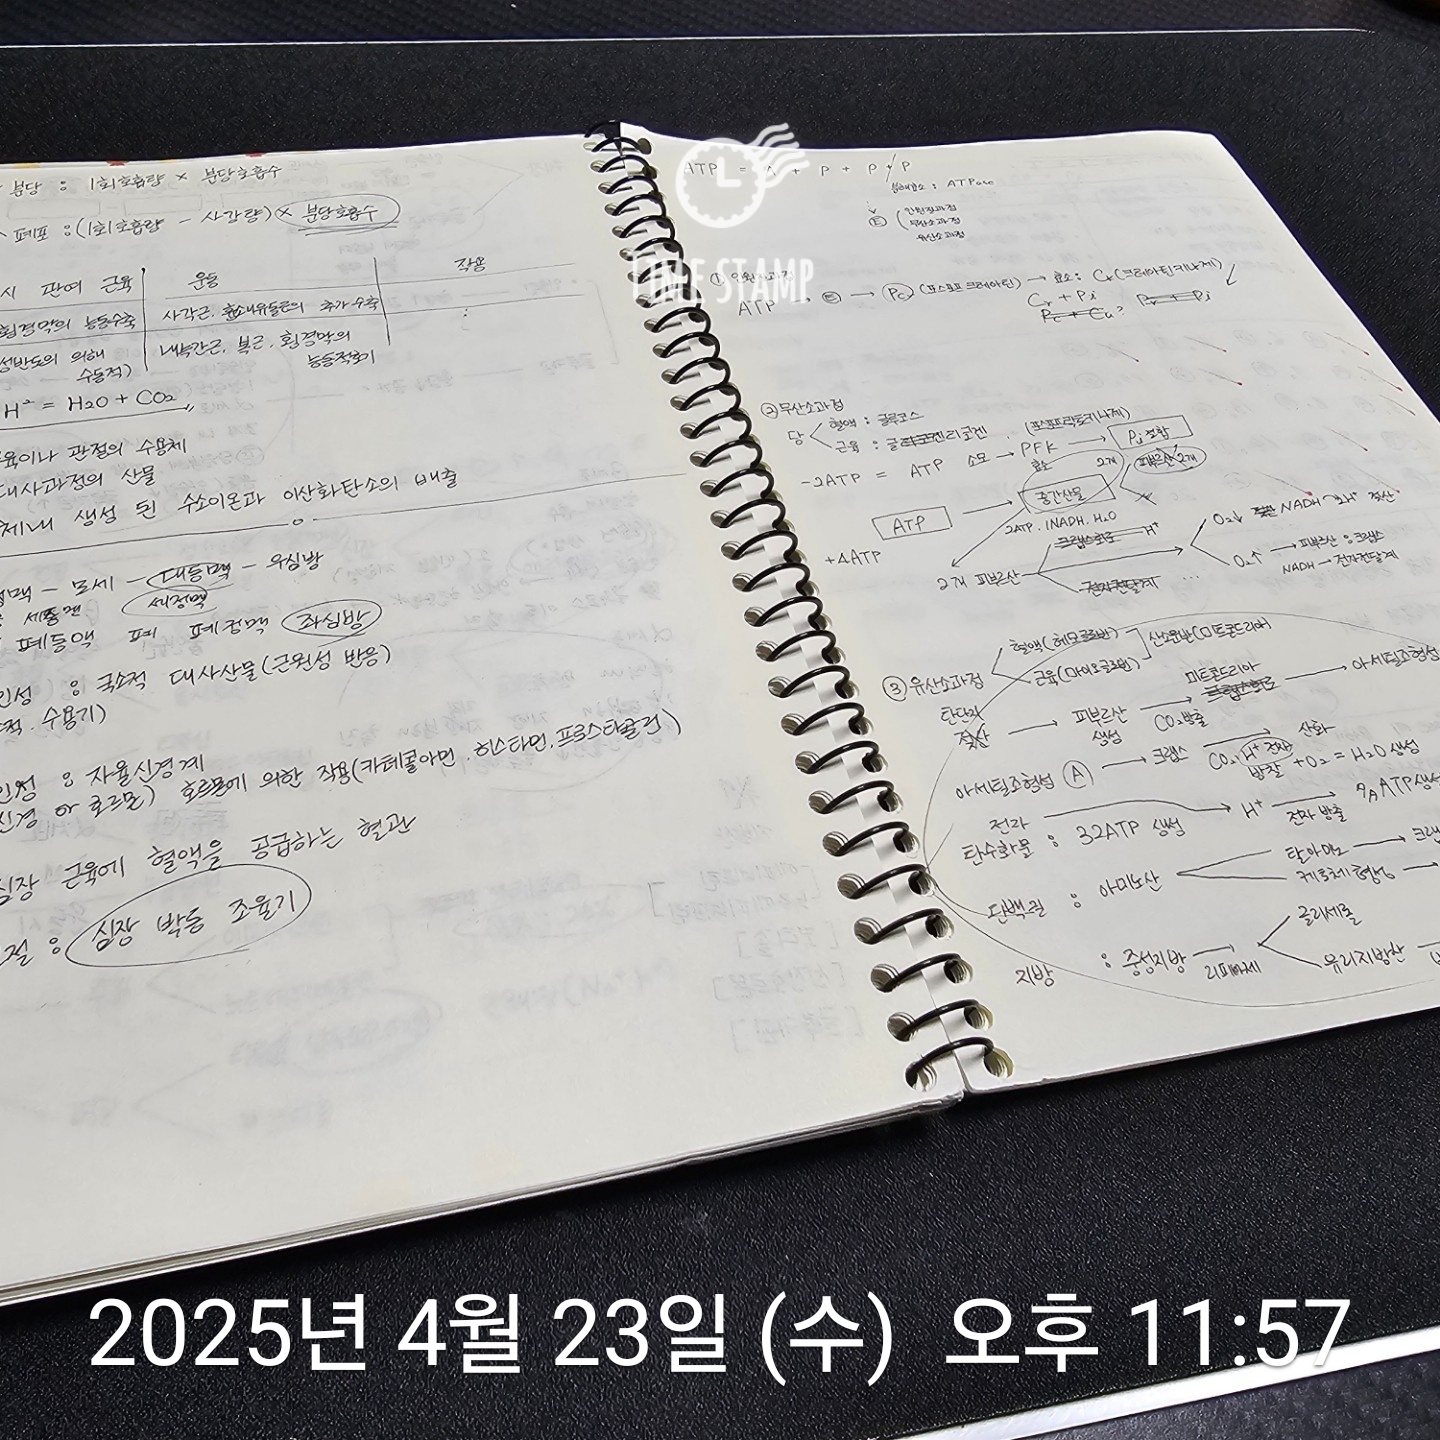 분당 : 1회호흡량 × 분당호흡수
폐포 : (1회호흡량 - 사강량) × 분당호흡수
시 관여 근육 운동 작용
횡경막의 능동수축 사각근, 흉쇄유돌근의 추가수축
성반도의 의해 내늑간근, 복근, 횡경막의
수동적) 능동적회기
H = H2O + CO2
육이나 관절의 수용체
대사과정의 산물
체내 생성 된 수소이온과 이산화탄소의 배출
정맥 - 모세 - 대동맥 - 우심방
세동맥 세정맥
폐동맥 폐 폐정맥 좌심방
인성 : 국소적 대사산물(근원성 반응)
적. 수용기)
인성 : 자율신경계
신경 or 호르몬) 호르몬에 의한 작용(카테콜아민, 히스타민, 프로스타글린)
심장 근육에 혈액을 공급하는 혈관
절 : 심장 박동 조율기
TIME STAMP
ATP = A + P + P + P
분해효소 : ATPase
E 인원질과정
무산소과정
유산소과정
① 인원질과정
ATP → E → PC (포스포크레아틴) → 효소 : Cr(크레아틴키나제)
Cr + Pi
② 무산소과정
당 혈액 : 글루코스
근육 : 글리코겐
(포스포프락토키나제)
-2ATP = ATP 소모 → PFK → Pi 결합
효소 2개 피부르산 2개
ATP → 중간산물
+4ATP 2ATP. 1NADH. H2O
크랩스회로 H+
2개 피부르산 전자전달계 ...
O2↓ NADH 젖산
O2↑ → 피부르산 : 크랩스
NADH → 전자전달계
③ 유산소과정 혈액(헤모글로빈) 산소운반(미토콘드리아
근육(마이오글로빈)
탄단지 → 피부르산 생성 → 미토콘드리아 → 아세틸조형성
CO2 방출
아세틸조형성 (A) → 크랩스 산화
CO2, H+ 전자 방출 + O2 = H2O 생성
전자 → H+ → ATP 생성
전자 방출
탄수화물 : 32ATP 생성
단백질 : 아미노산 탈아미노 → 크랩
케토체 형성 →
지방 : 중성지방 → 글리세롤
리파아제 유리지방산
2025년 4월 23일 (수) 오후 11:57